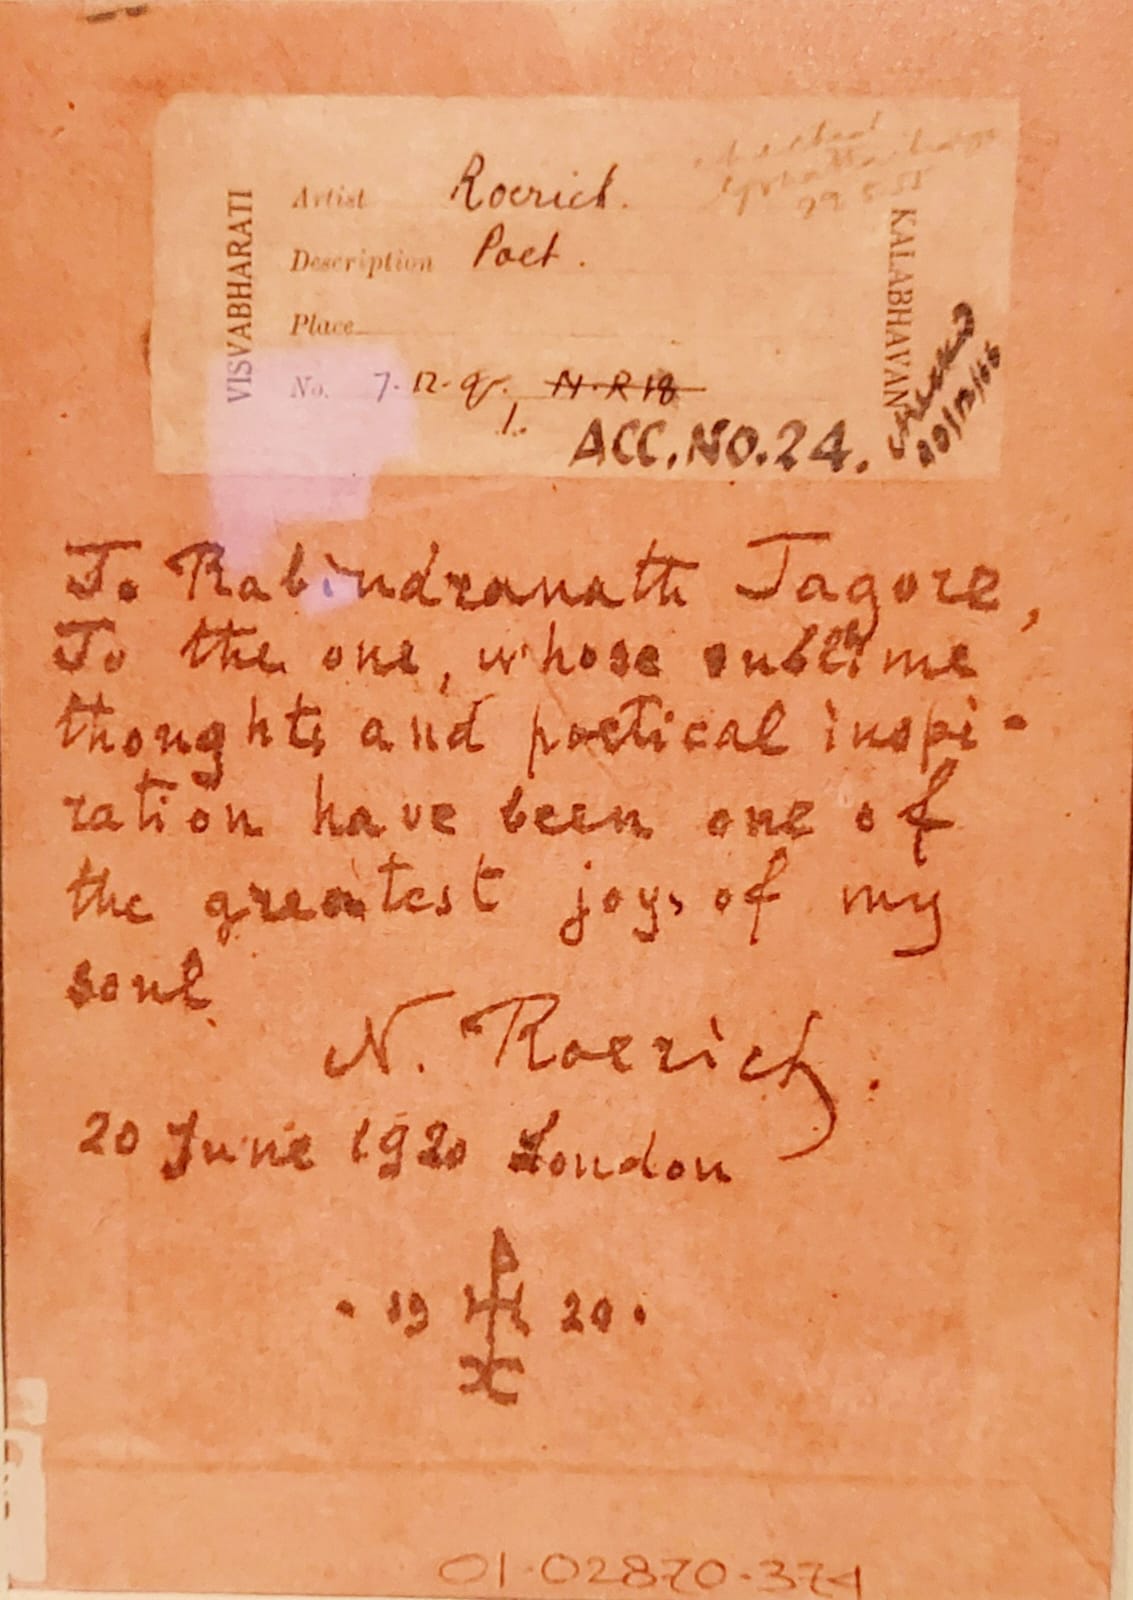 VISVABHARATI
KALABHAVAN
Artist Roerich.
Description Poet.
Place
No. 7-12-9. N.R 18
1.
ACC.NO.24.
Checked
20/12/66
To Rabindranath Tagore,
To the one, whose sublime
thoughts and poetical inspi-
ration have been one of
the greatest joys of my
soul.
N. Roerich.
20 June 1920 London
· 19 20 ·
01-02870-374